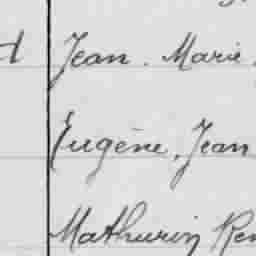 Jean. Marie
Eugène, Jean
Mathurin